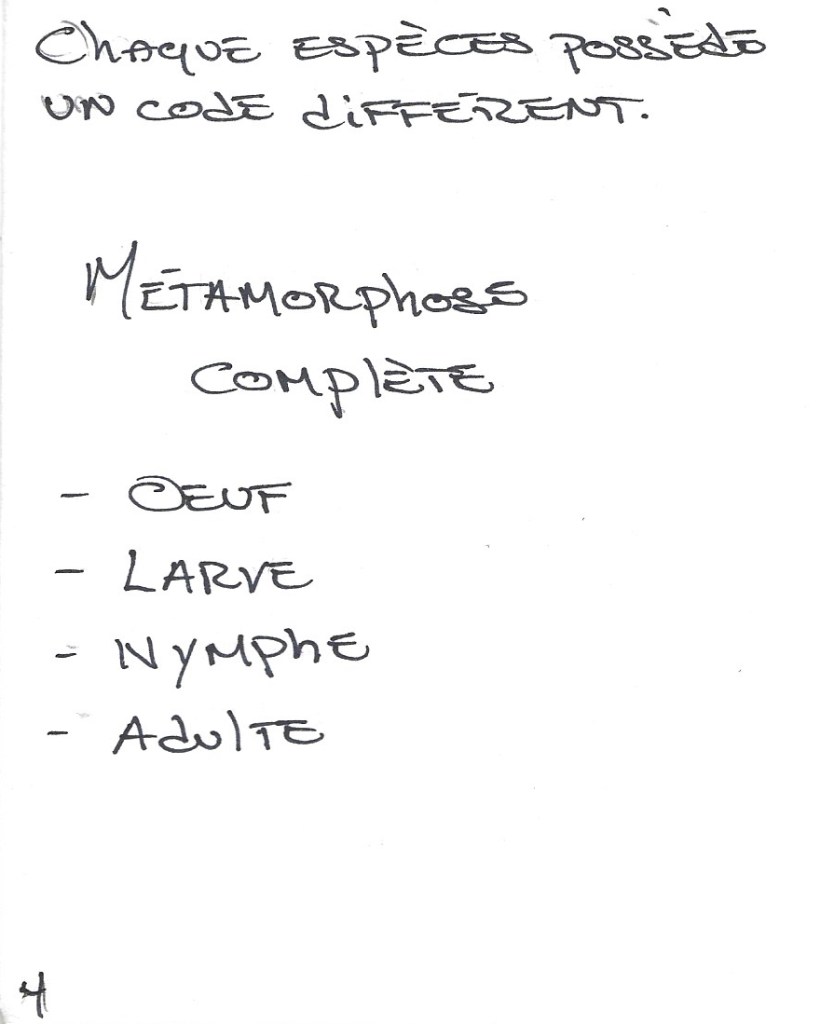 Chaque espèces possède
un code différent.
Métamorphose
complète
- Oeuf
- Larve
- Nymphe
- Adulte
4